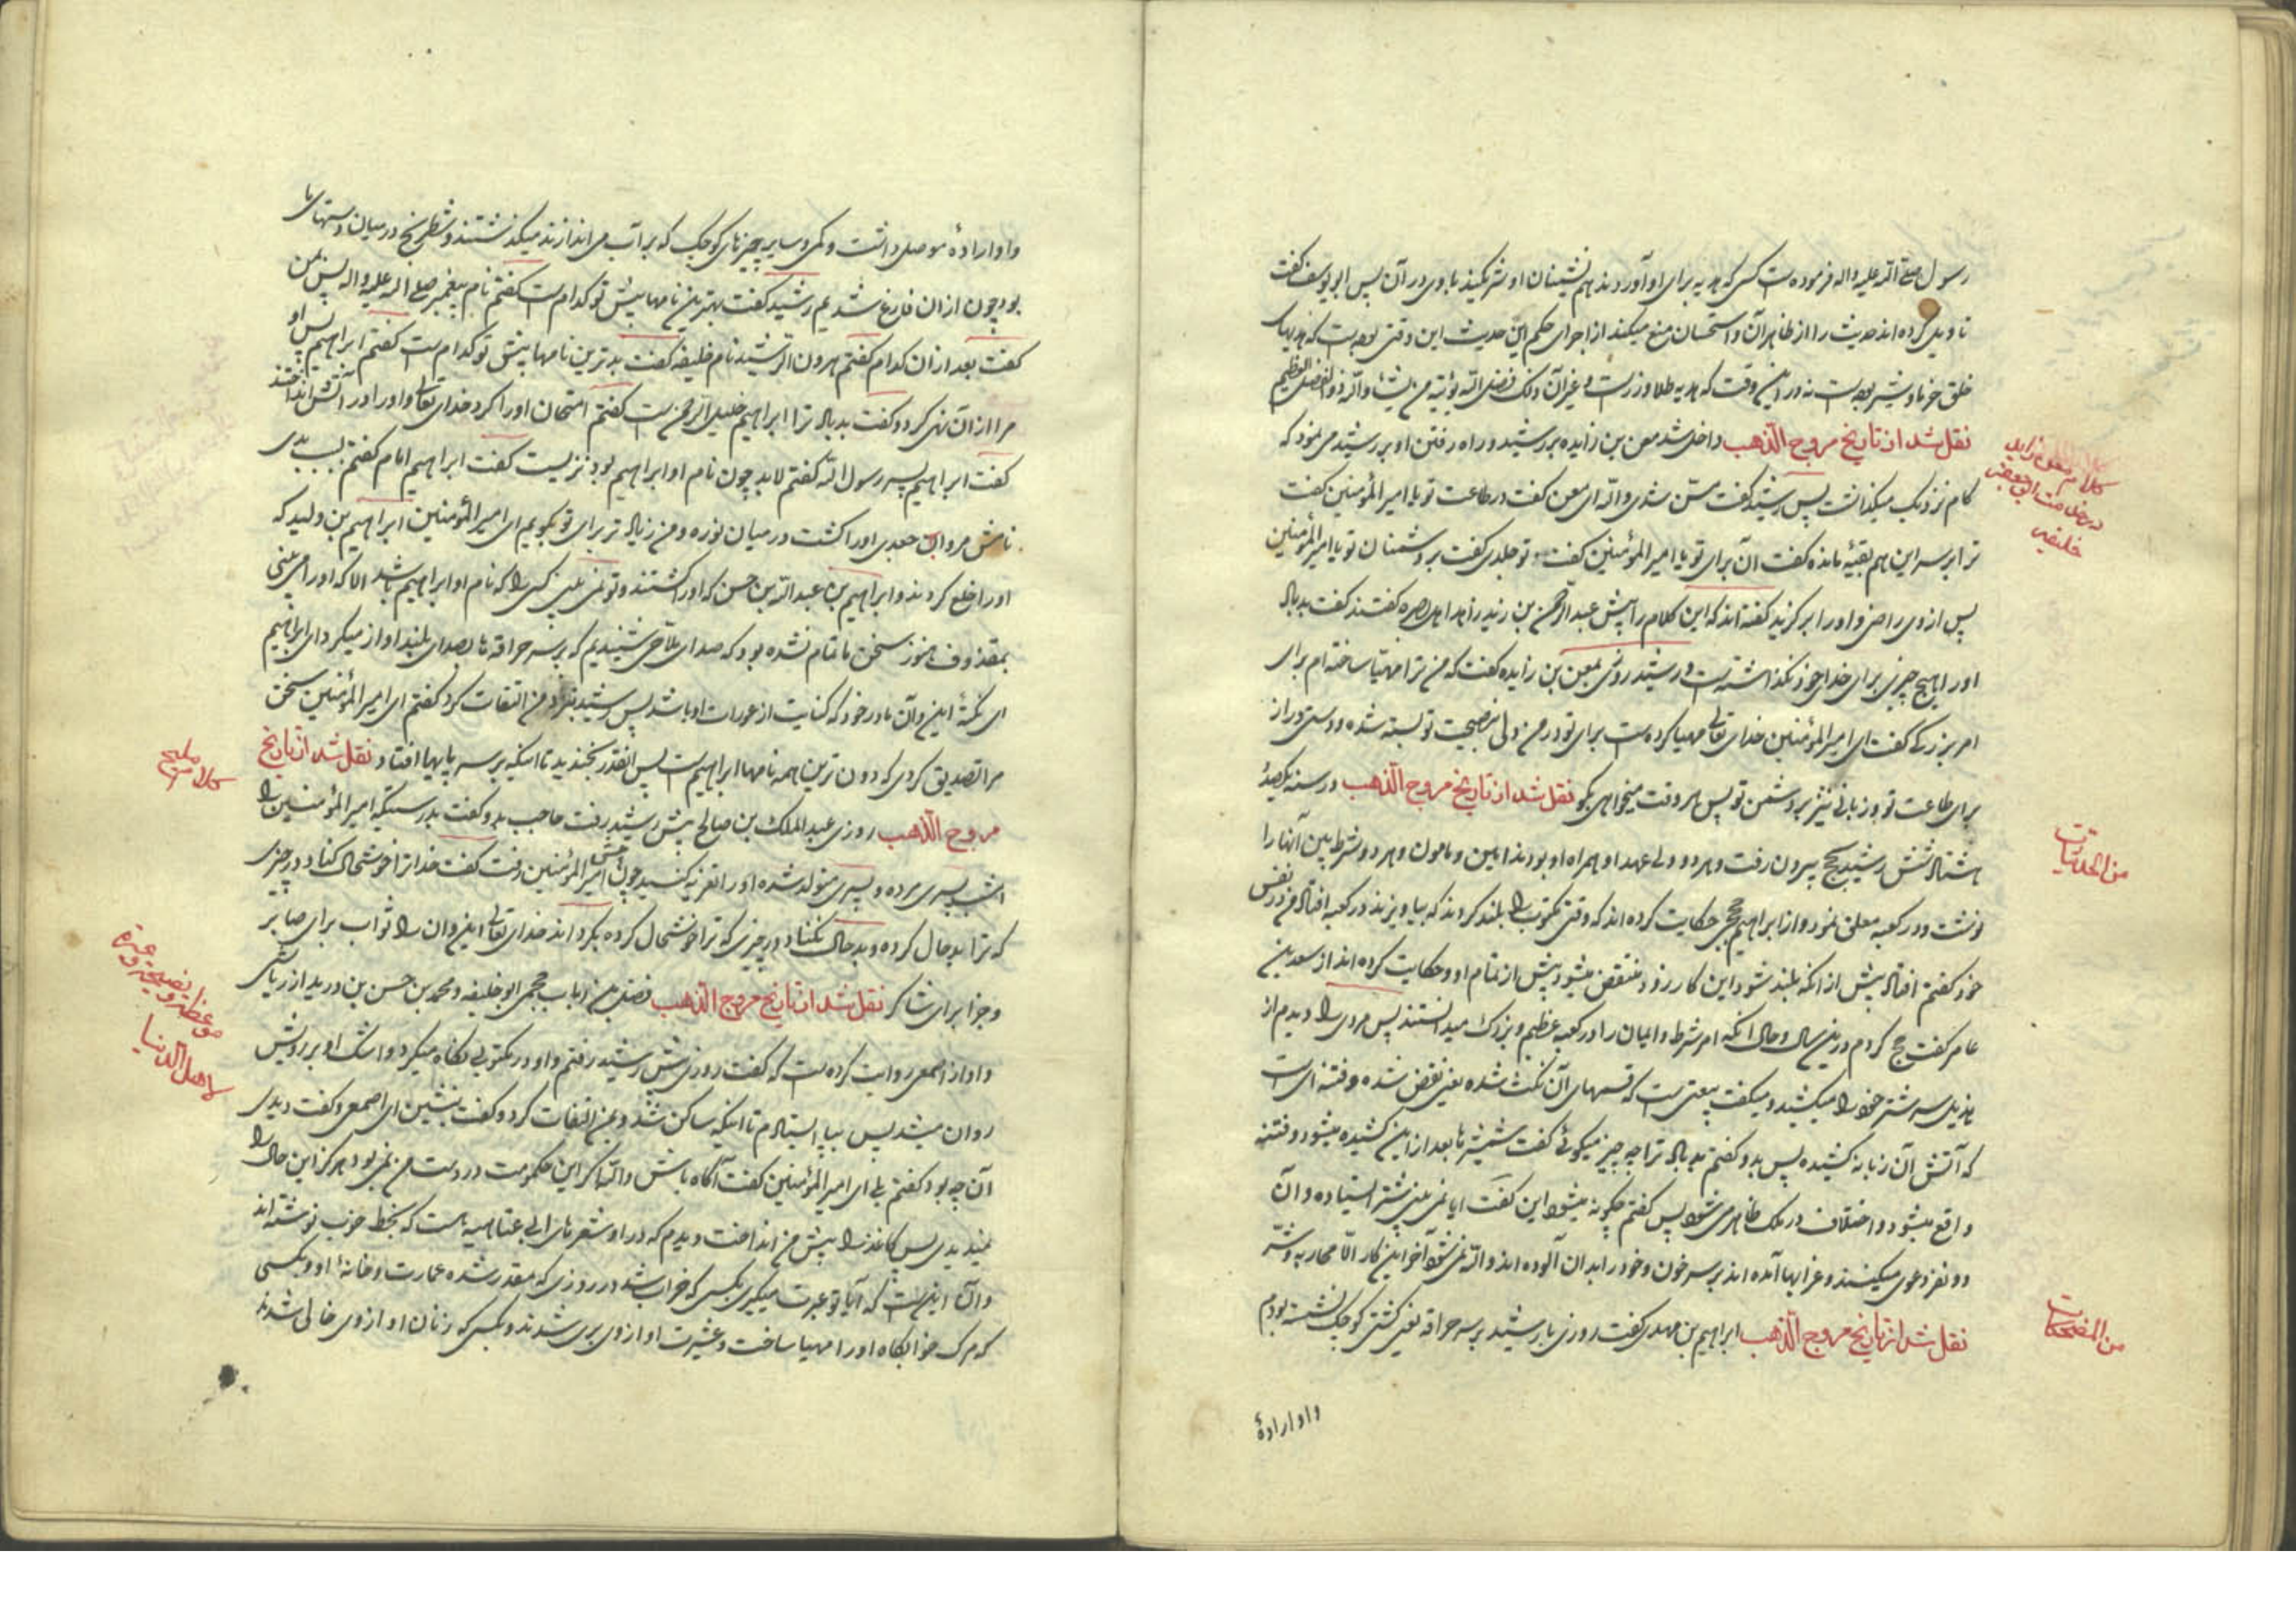 رسول صلی الله علیه واله فرموده است کسی که هدیه برای او آوردند هم نشینان او شریکند با وی در آن پس ابو یوسف گفت
تاویل کرده اند حدیث را از ظاهر آن و استحسان منع میکند از اجرای حکم این حدیث این وقتی بوده است که هدیهای
خلق خرما و شیر بوده است نه در این وقت که هدیه طلا و زر است و غیر آن ذلک فضل الله یؤتیه من یشاء والله ذو الفضل العظیم
نقل شد از تاریخ مروج الذهب داخل شد معن بن زایده بر رشید و راه رفتن او بر رشید می نمود که
کام نزدیک میگذاشت پس رشید گفت مسن شدی والله ای معن گفت در طاعت تو یا امیر المؤمنین گفت
ترا بر سر این هم بقیه مانده گفت آن برای تو یا امیر المؤمنین گفت تو جلدی گفت بر دشمنان تو یا امیر المؤمنین
پس از وی راضی و او را بر گزید گفته اند که این کلام را پیش عبد الرحمن بن زید زاهد اهل بصره گفتند گفت بد باد
او را هیچ چیزی برای خدای خود نگذاشته است و رشید روزی بمعن بن زایده گفت که من ترا مهیا ساخته ام برای
امر بزرگی گفت ای امیر المؤمنین خدای تعالی مهیا کرده است برای تو در من دلی نصیحت تو بسته شده و دستی دراز
برای طاعت تو و زبانی تیز بر دشمن تو پس هر وقت میخواهی بگو نقل شد از تاریخ مروج الذهب در سنه یکصد و
هشتاد و شش رشید بحج بیرون رفت و هر دو ولی عهد او همراه او بودند امین و مامون و هر دو شرط بین آنها را
نوشت و در کعبه معلق نمود و از ابراهیم حجبی حکایت کرده اند که وقتی مکتوب را بلند کردند که بیاویزند در کعبه افتاد من در نفس
خود گفتم افتاد پیش از آنکه بلند شود این کار زود منتقض میشود پیش از تمام او و حکایت کرده اند از سعد بن
عامر گفت حج کردم در این سال و حال آنکه امر شرط و ایمان را در کعبه عظیم و بزرگ میدانستند پس مردی را دیدم از
هذیل سر شتر خود را میکشید و میگفت بیعتی است که قسمهای آن نکث شده یعنی نقض شده و فتنه ای است
که آتش آن زبانه کشیده پس بدو گفتم بد باد ترا چه چیز میگوئی گفت شمشیرها بعد از این کشیده میشود و فتنه
واقع میشود و اختلاف در ملک ظاهر می شود پس گفتم چگونه میشود این گفت ایا نمی بینی شتر ایستاده و آن
دو نفر دعوی میکنند و غرابها آمده اند بر سر خون و خود را بدان آلوده اند والله نمی شود آخر این کار الا محاربه و شر
نقل شد از تاریخ مروج الذهب ابراهیم بن مهدی گفت روزی با رشید بر سر حراقه یعنی کشتی کوچک نشسته بودم
و او اراده
کلام معن زایده
خلیفه
من الحکایات
من المضحکات
و او اراده موصل داشت و سایر چیزهای کوچک که بر آب می اندازند میگذشتند و شطرنج در میان دستهای ما
بود چون از آن فارغ شدیم رشید گفت بهترین نامها پیش تو کدام است گفتم نام پیغمبر صلی الله علیه واله پس بمن
گفت بعد از آن کدام گفتم هرون الرشید نام خلیفه گفت بدترین نامها پیش تو کدام است گفتم ابراهیم پس او
مرا از آن نهی کرد و گفت بد باد ترا ابراهیم خلیل الرحمن است گفتم امتحان او را کرد خدای تعالی و او را در آتش انداختند
گفت ابراهیم پسر رسول الله گفتم لابد چون نام او ابراهیم بود نزیست گفت ابراهیم امام گفتم بسبب بدی
نامش مروان جعدی او را کشت در میان نوره و من زیاد تر برای تو بگویم ای امیر المؤمنین ابراهیم بن ولید که
او را خلع کردند و ابراهیم بن عبد الله بن حسن که او را کشتند و تو نمی بینی کسی را که نام او ابراهیم باشد الا که او را می بینی
مقذوف هنوز سخن ما تمام نشده بود که صدای ملاحی شنیدیم که بر سر حراقه ها بصدای بلند اواز میکرد ای ابراهیم
ای این و آن مادر خود که کنایت از عورات او باشد پس رشید بنزد من التفات کرد گفتم ای امیر المؤمنین سخن
مرا تصدیق کردی که دون ترین همه نامها ابراهیم است پس انقدر بخندید تا اینکه بر سر پایها افتاد نقل شد از تاریخ
مروج الذهب روزی عبد الملک بن صالح پیش رشید رفت حاجب بدو گفت بدرستیکه امیر المؤمنین را
امشب پسری مرده و پسری متولد شده او را تعزیه کنید چون پیش امیر المؤمنین رفت گفت خدا ترا خوشحال کناد در چیزی
که ترا بد حال کرده و بد حال نکناد در چیزی که ترا خوشحال کرده بگرداند خدای تعالی این و ان را ثواب برای صابر
و جزا برای شاکر نقل شد از تاریخ مروج الذهب فضل بن حباب جمحی ابو خلیفه و محمد بن حسن بن درید از ریاشی
و او از اصمعی روایت کرده است که گفت روزی پیش رشید رفتم و او در مکتوبی نگاه میکرد و اشک او بر رویش
روان میشد پس بپا ایستادم تا اینکه ساکن شد و بمن التفات کرد و گفت بنشین ای اصمعی و گفت دیدی
آن چه بود گفتم بلی ای امیر المؤمنین گفت آگاه باش والله اگر این حکومت در دست من نمی بود هرگز این حال را
نمیدیدی پس کاغذ را پیش من انداخت و دیدم که در او شعرهای ابی عتاهیه است که بخط خوب نوشته اند
و آن این است که آیا تو عبرت میگیری بکسی که خراب شد در روزی که مقدر شده عمارت و خانه او و بکسی
که مرگ خوابگاه او را مهیا ساخت و عشیرت او از وی بری شدند و بکسی که زنان او از وی خالی شدند
کلام ملیح
موعظه و نصیحة و عبرة
لاهل الدنیا